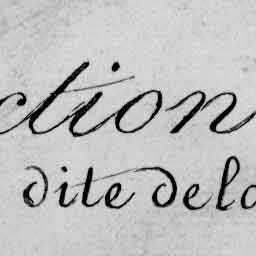 ction
dite dela